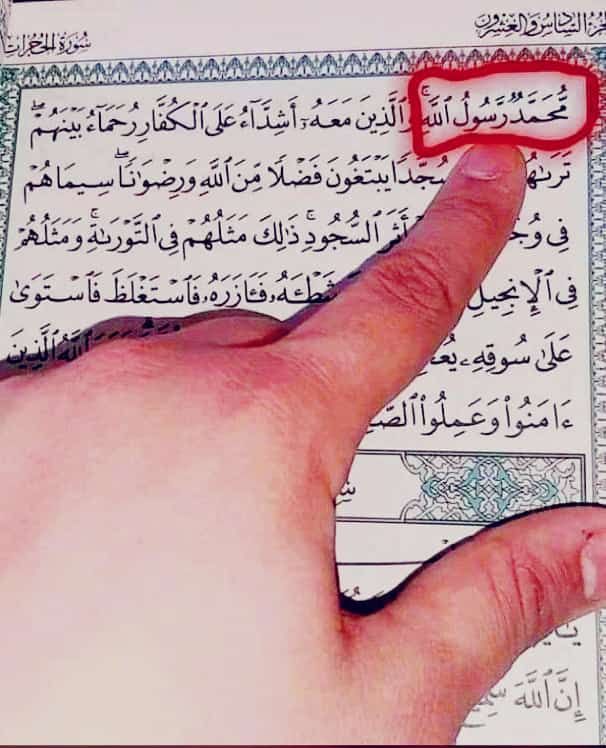 سُورَةُ الحُجُرَاتِ
الجُزْءُ السَّادِسُ وَالعِشْرُونَ
مُّحَمَّدٌ رَّسُولُ ٱللَّهِۚ وَٱلَّذِينَ مَعَهُۥٓ أَشِدَّآءُ عَلَى ٱلْكُفَّارِ رُحَمَآءُ بَيْنَهُمْۖ
سُجَّدًا يَبْتَغُونَ فَضْلًا مِّنَ ٱللَّهِ وَرِضْوَٰنًاۖ سِيمَاهُمْ
فِى أَثَرِ ٱلسُّجُودِۚ ذَٰلِكَ مَثَلُهُمْ فِى ٱلتَّوْرَىٰةِۚ وَمَثَلُهُمْ
فِى ٱلْإِنجِيلِ شَطْـَٔهُۥ فَـَٔازَرَهُۥ فَٱسْتَغْلَظَ فَٱسْتَوَىٰ
عَلَىٰ سُوقِهِۦ ٱللَّهُ ٱلَّذِينَ
ءَامَنُوا۟ وَعَمِلُوا۟
إِنَّ ٱللَّهَ